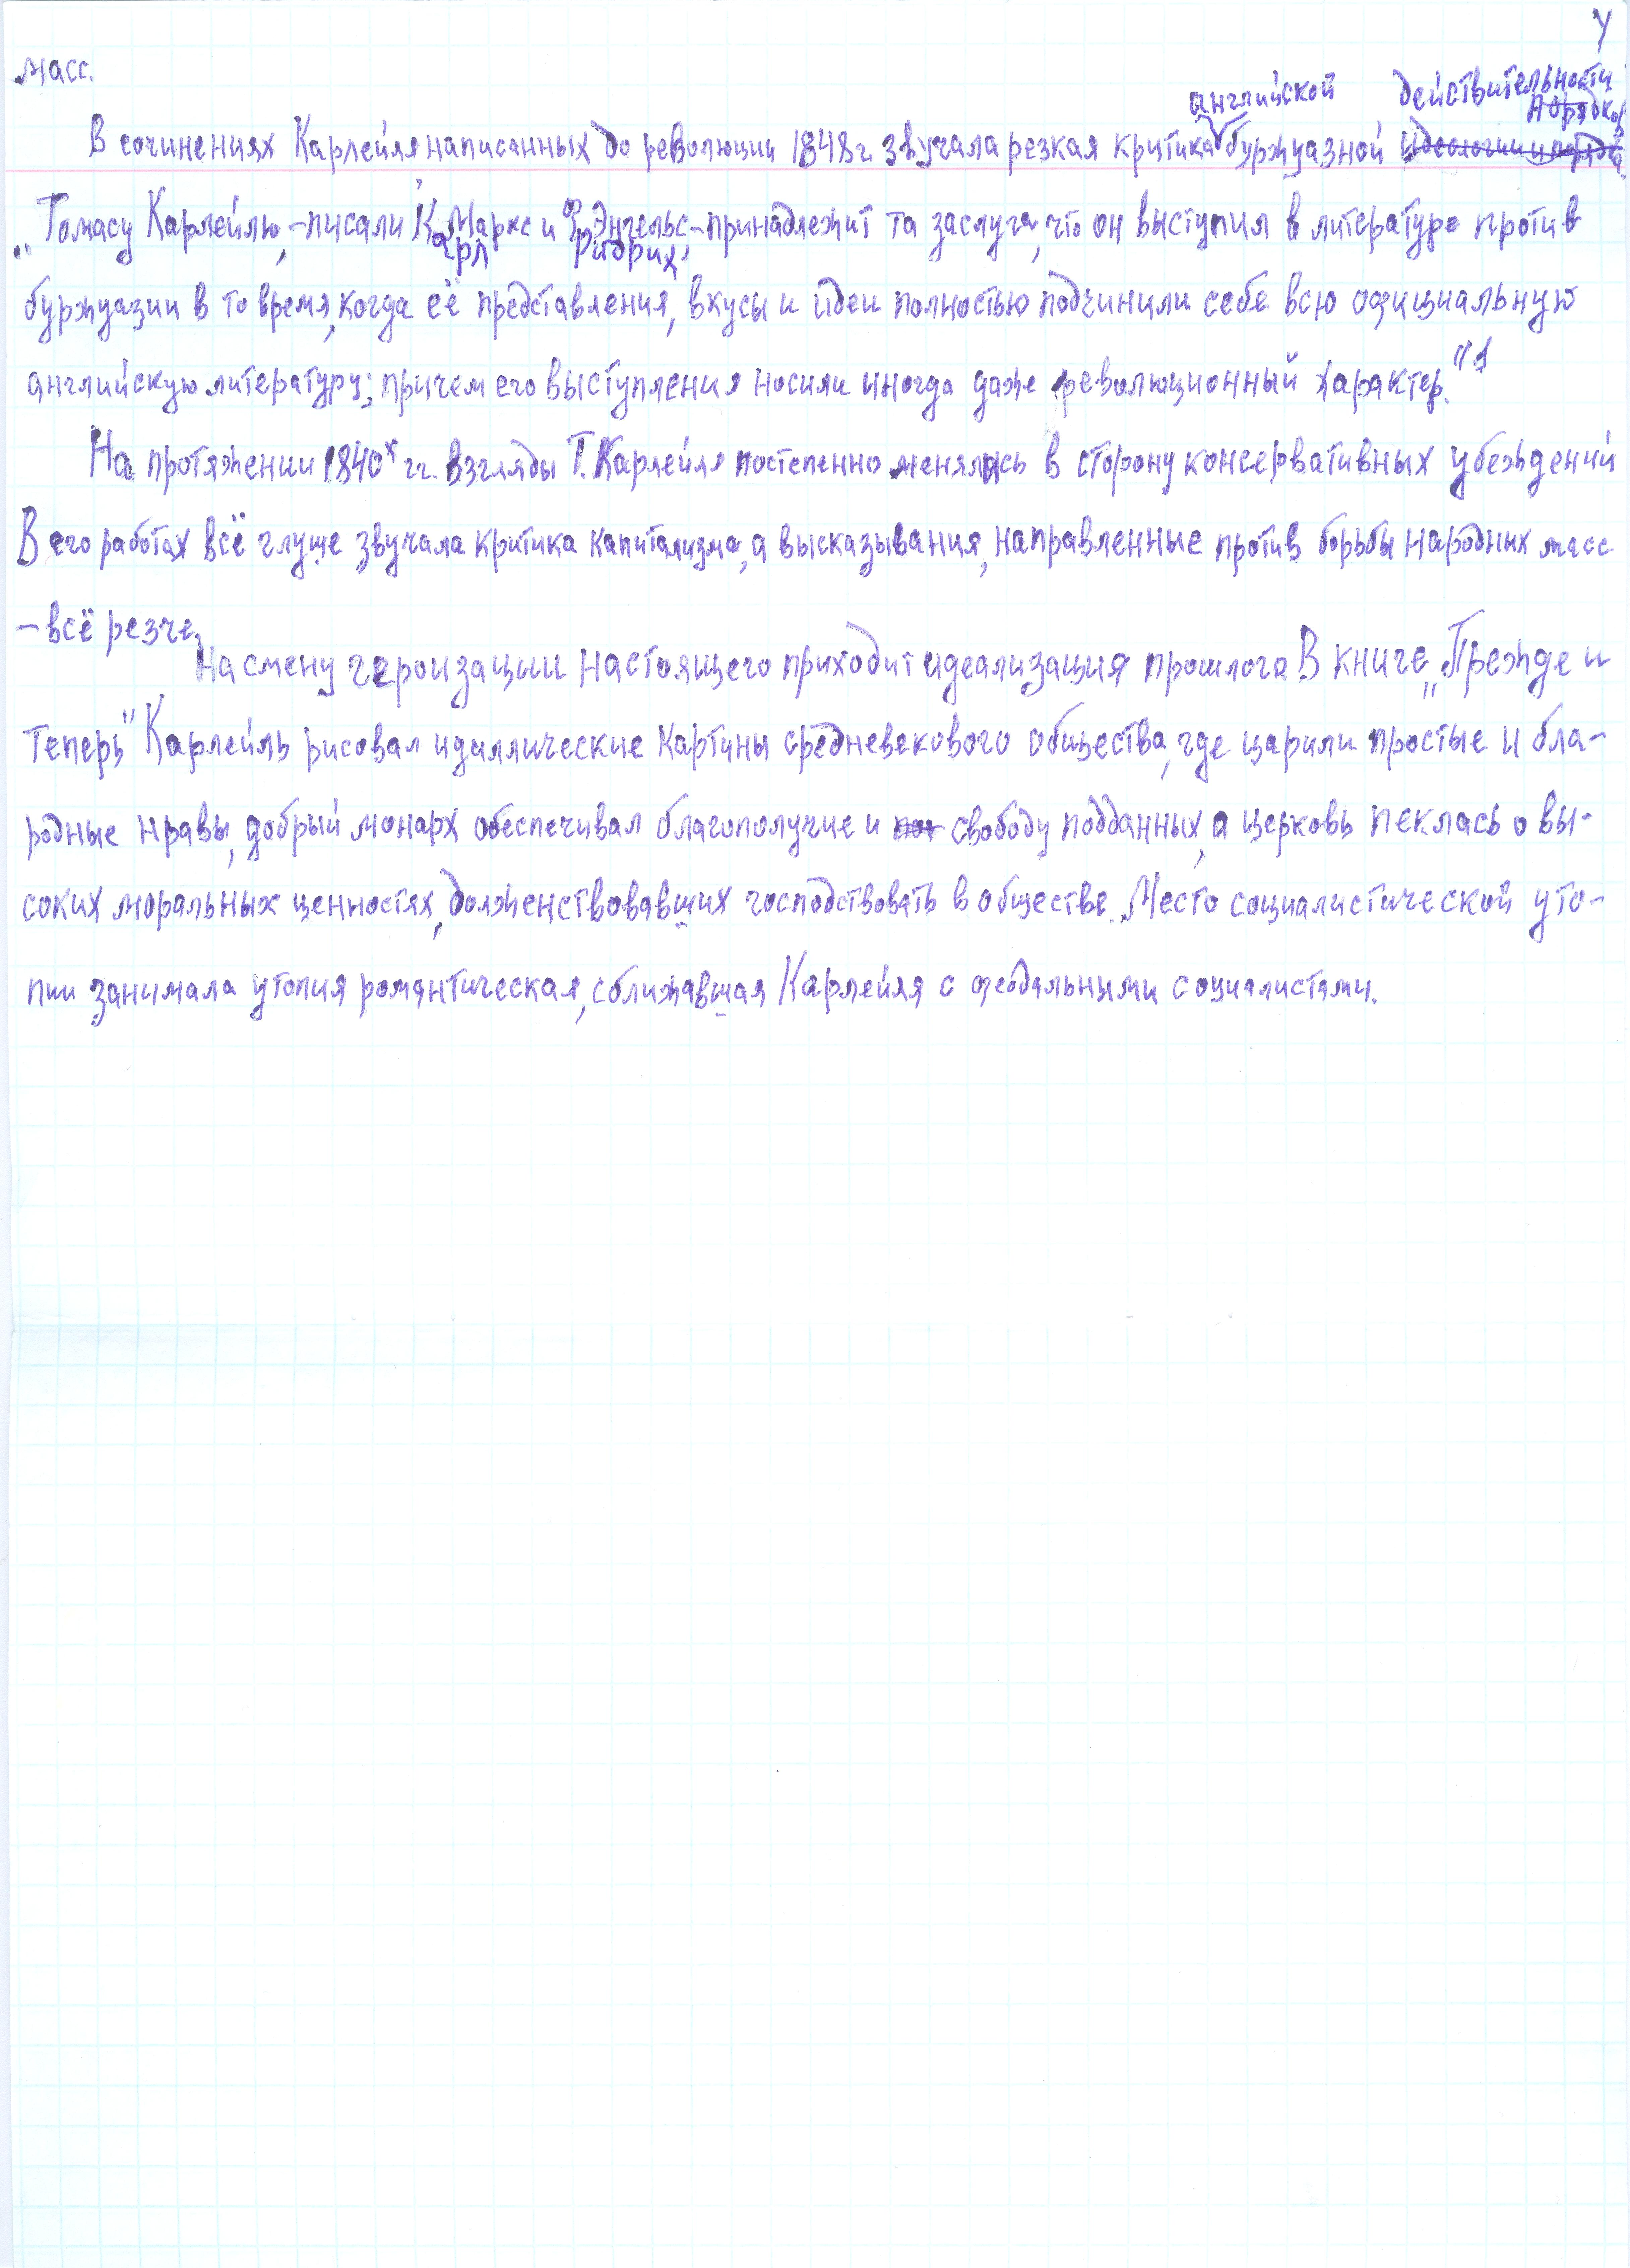 У
масс.
английской действительности
порядков
В сочинениях Карлейля написанных до революции 1848 г. звучала резкая критика буржуазной идеологии и порядков
„Томасу Карлейлю, – писали К. Маркс и Ф. Энгельс, – принадлежит та заслуга, что он выступил в литературе против
арл ридрих
буржуазии в то время, когда её представления, вкусы и идеи полностью подчинили себе всю официальную
английскую литературу; причем его выступления носили иногда даже революционный характер."1
На протяжении 1840х гг. взгляды Т. Карлейля постепенно менялись в сторону консервативных убеждений
В его работах всё глуше звучала критика капитализма, а высказывания, направленные против борьбы народных масс
– всё резче.
На смену героизации настоящего приходит идеализация прошлого. В книге „Прежде и
теперь" Карлейль рисовал идиллические картины средневекового общества, где царили простые и бла-
родные нравы, добрый монарх обеспечивал благополучие и свободу подданных, а церковь пеклась о вы-
соких моральных ценностях, долженствовавших господствовать в обществе. Место социалистической уто-
пии занимала утопия романтическая, сближавшая Карлейля с феодальными социалистами.